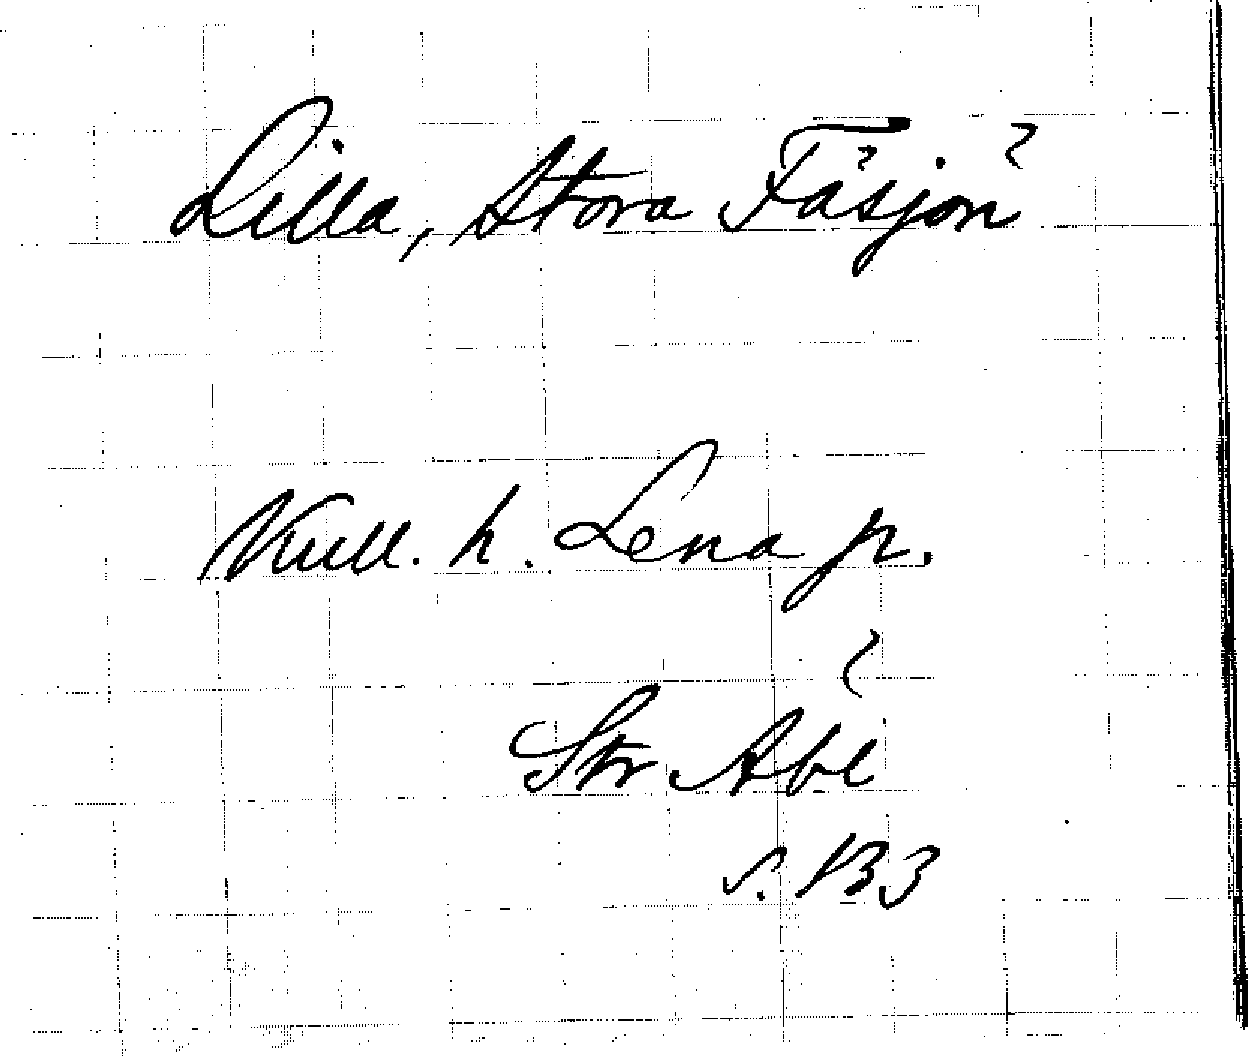 Lilla, Stora Fäsjön
Kull. h. Lena sn.
Str Åbl
s. 133